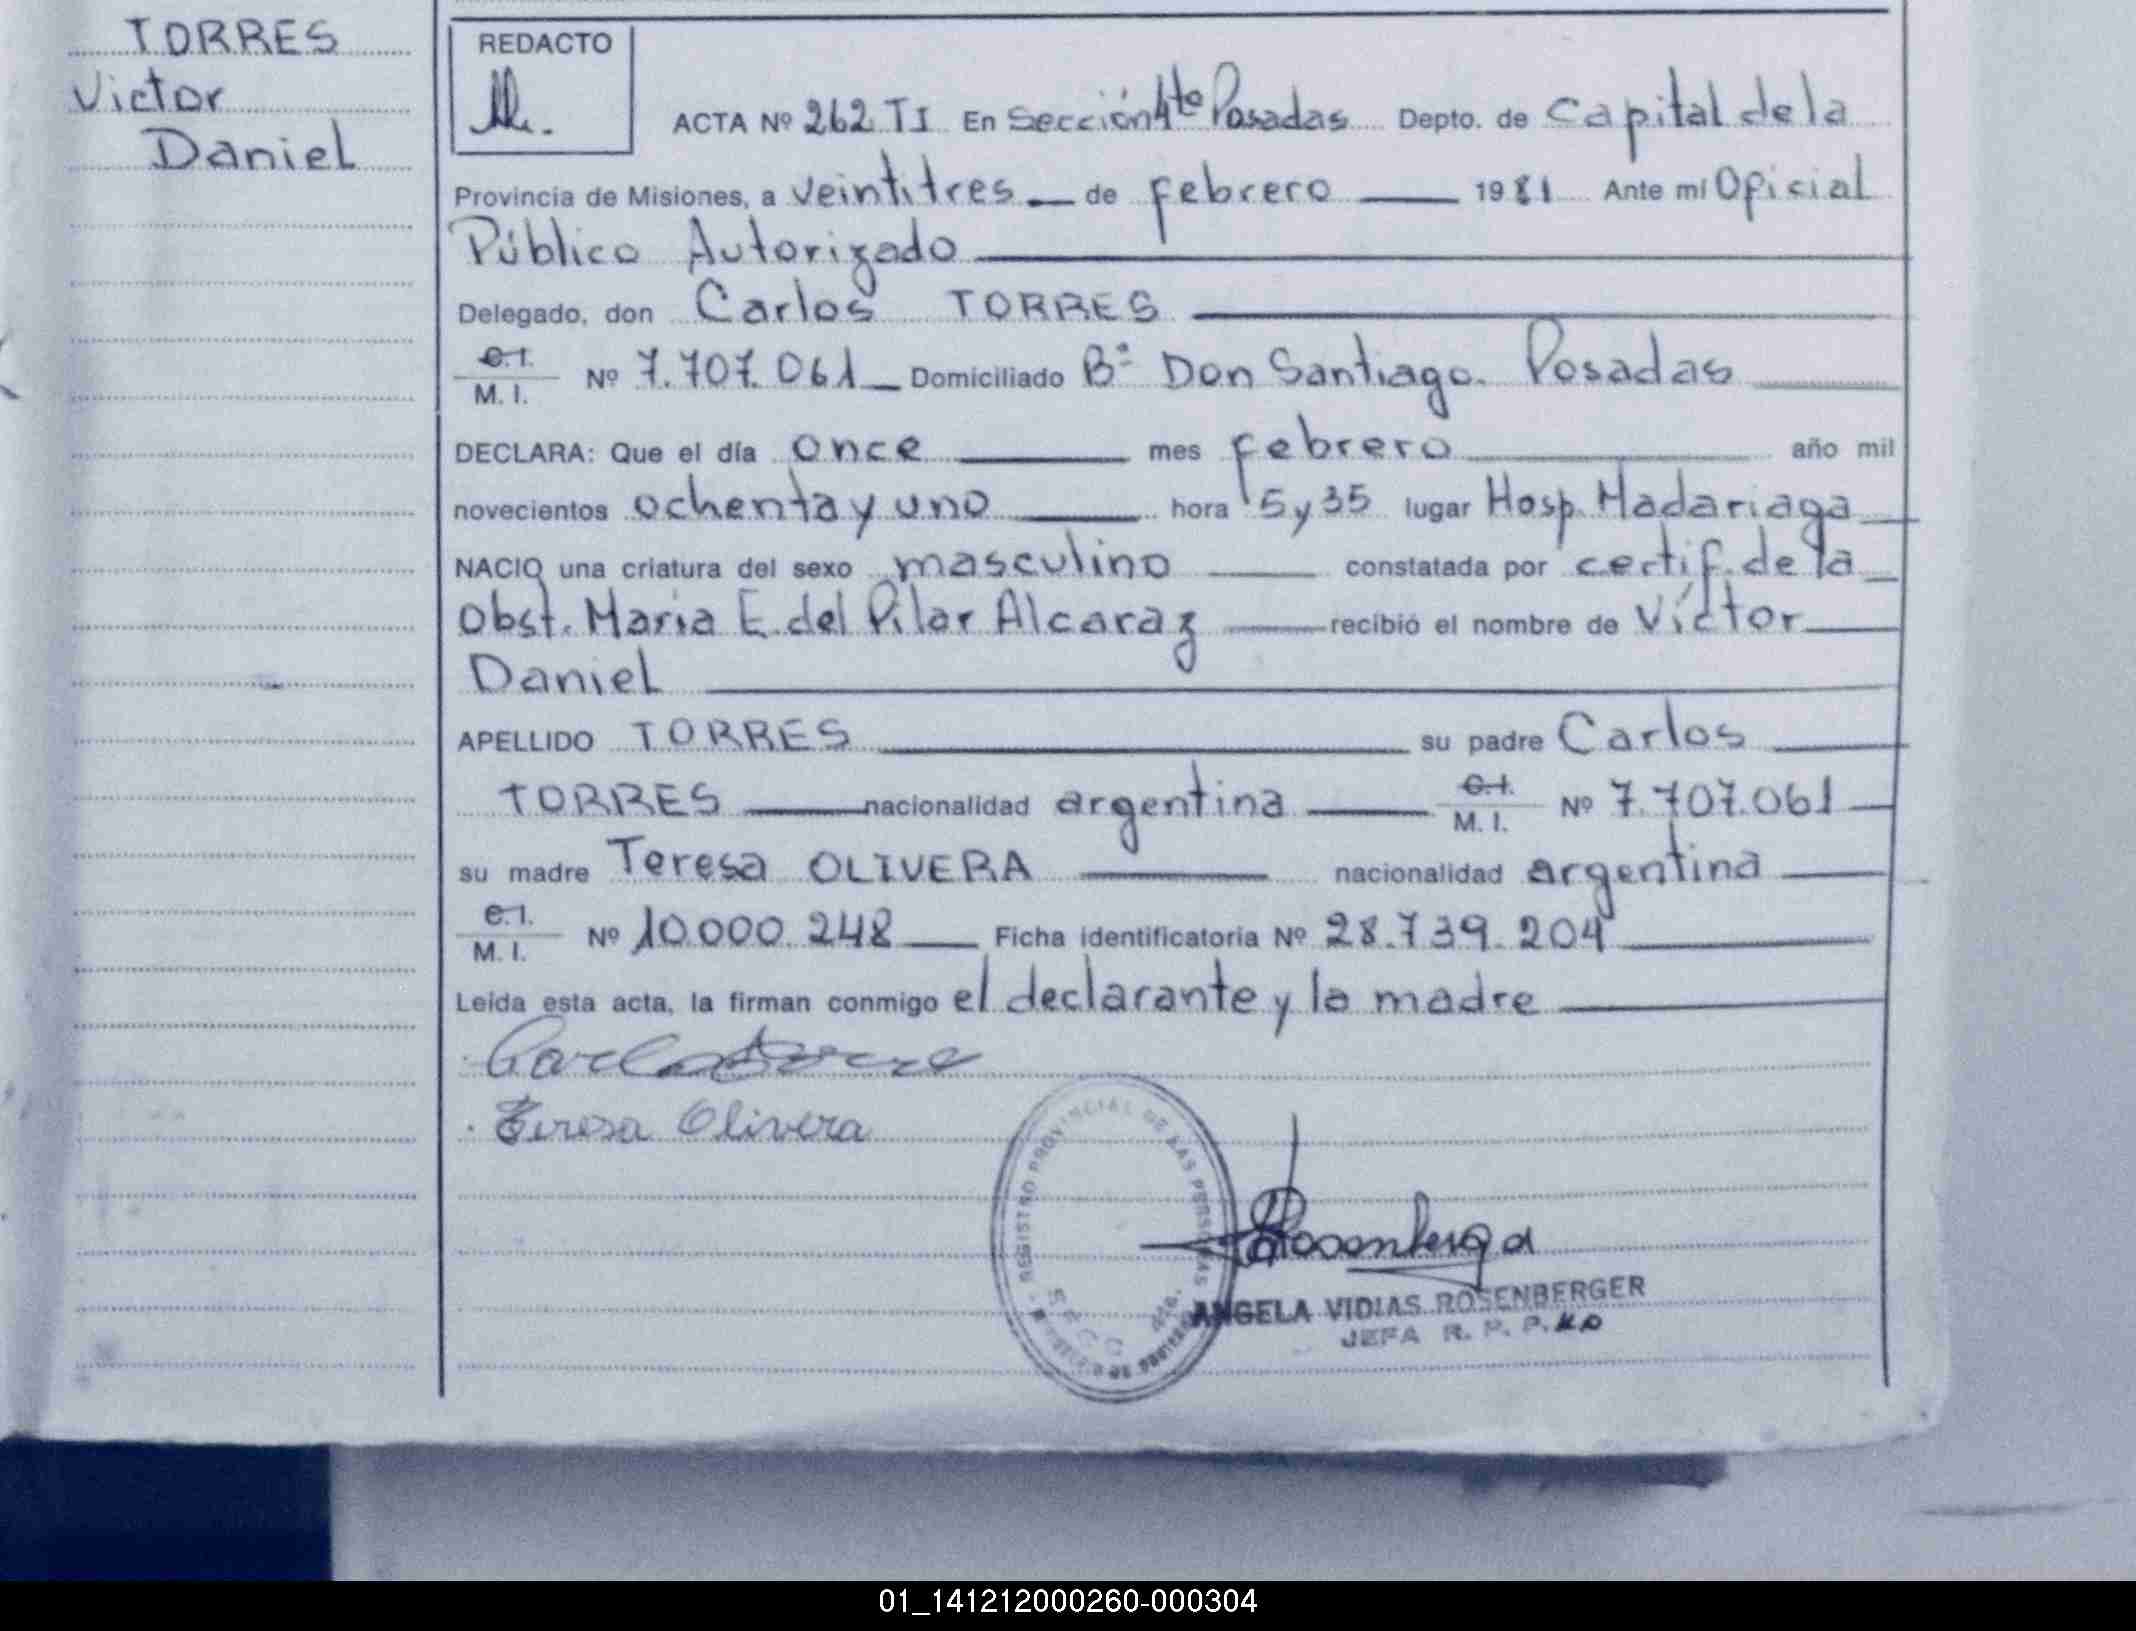 TORRES
Victor
Daniel
REDACTO
ACTA Nº 262 TI En Sección 4to Posadas Depto. de Capital de la
Provincia de Misiones, a veintitres de febrero 1981 Ante mi Oficial
Público Autorizado
Delegado, don Carlos TORRES
C.I.
M. I. Nº 7.707.061 Domiciliado Bº Don Santiago. Posadas
DECLARA: Que el día once mes febrero año mil
novecientos ochenta y uno hora 5 y 35 lugar Hosp. Madariaga
NACIO una criatura del sexo masculino constatada por certif. de la
Obst. Maria E. del Pilar Alcaraz recibió el nombre de Víctor
Daniel
APELLIDO TORRES su padre Carlos
TORRES nacionalidad argentina C.I.
M. I. Nº 7.707.061
su madre Teresa OLIVERA nacionalidad argentina
C.I.
M. I. Nº 10.000.248 Ficha identificatoria Nº 28.739.204
Leida esta acta, la firman conmigo el declarante y la madre
Teresa Olivera
REGISTRO PROVINCIAL DE LAS PERSONAS
SECC
ANGELA VIDIAS ROSENBERGER
JEFA R. P. P.
01_141212000260-000304